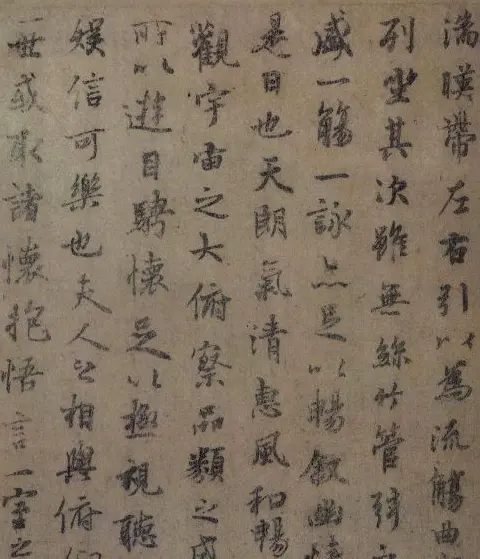 湍暎帶左右引以為流觴曲
列坐其次雖無絲竹管弦
盛一觴一詠亦足以暢敘幽情
是日也天朗氣清惠風和暢
觀宇宙之大俯察品類之盛
所以遊目騁懷足以極視聽
娛信可樂也夫人之相與俯仰
一世或取諸懷抱悟言一室之